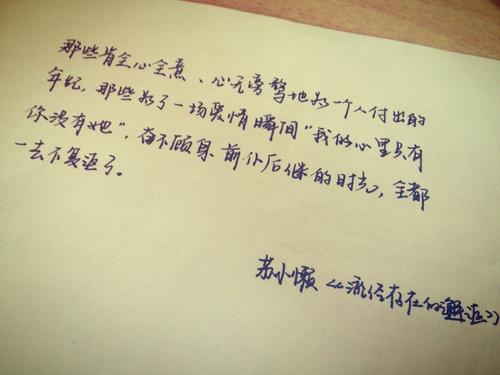 那些肯全心全意、心无旁骛地为一个人付出的
年纪,那些为了一场爱情瞬间"我的心里只有
你没有她",奋不顾身、前仆后继的时光,全都
一去不复返了。
苏小懒《流经存在的邂逅》